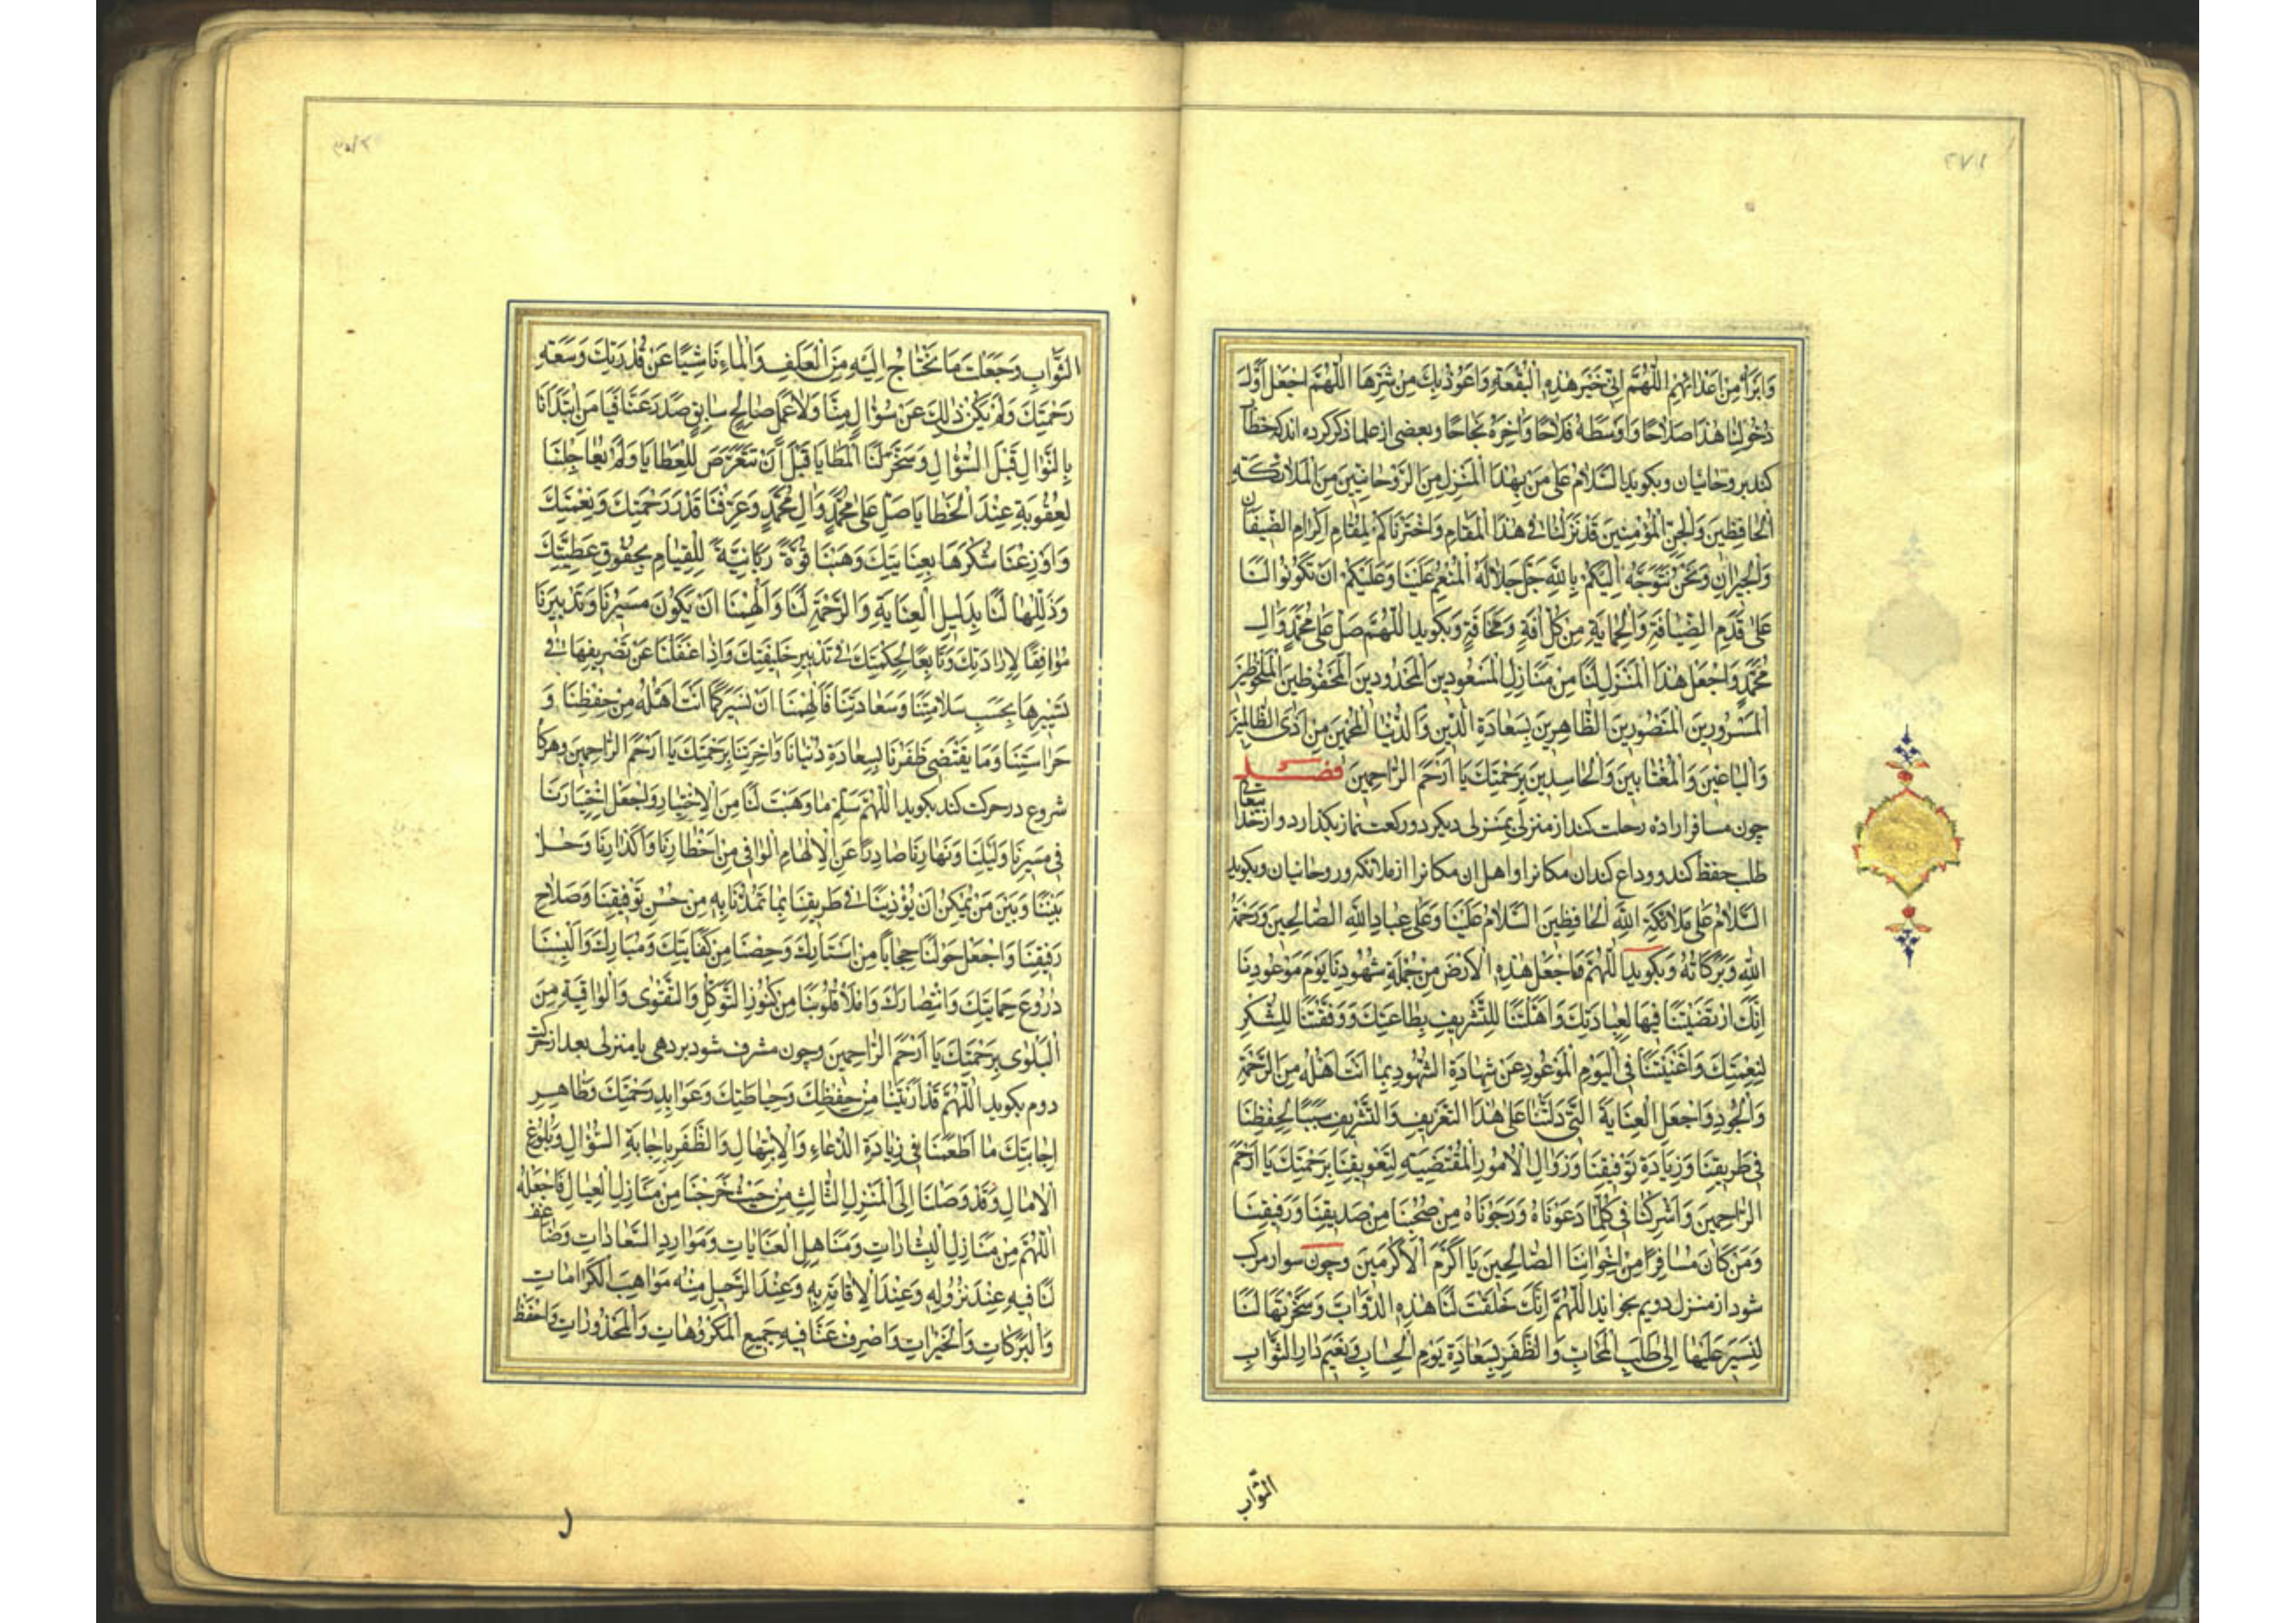 ٢٧١
وَابْرَأهُ مِنْ اَعْدَائِهِمْ اَللّٰهُمَّ اِنّى خَيْرَ هٰذِهِ الْبُقْعَةِ وَاَعُوذُ بِكَ مِنْ شَرِّهَا اَللّٰهُمَّ اجْعَلْ اَوَّلَ
دُخُولِنَا هٰذَا صَلَاحًا وَاَوْسَطَهُ فَلَاحًا وَاٰخِرَهُ نَجَاحًا وبعضى از علما ذكر كرده اند كه خطاب
كند بروحانيان وبكويد اَلسَّلَامُ عَلٰى مَنْ بِهٰذَا الْمَنْزِلِ مِنَ الرَّوْحَانِيِّينَ مِنَ الْمَلَائِكَةِ
الْحَافِظِينَ وَالْجِنِّ الْمُؤْمِنِينَ قَدْ نَزَلْنَا فى هٰذَا الْمَقَامِ وَاخْتَرْنَاكُمْ لِمَقَامِ اِكْرَامِ الضِّيفَانِ
وَالْجِيرَانِ وَنَحْنُ نَتَوَجَّهُ اِلَيْكُمْ بِاللّٰهِ جَلَّ جَلَالُهُ الْمُنْعِمُ عَلَيْنَا وَعَلَيْكُمْ اَنْ تَكُونُوا لَنَا
عَلٰى قَدَمِ الضِّيَافَةِ وَالْحِمَايَةِ مِنْ كُلِّ اٰفَةٍ وَمَخَافَةٍ وبكويد اَللّٰهُمَّ صَلِّ عَلٰى مُحَمَّدٍ وَاٰلِ
مُحَمَّدٍ وَاجْعَلْ هٰذَا الْمَنْزِلَ لَنَا مِنْ مَنَازِلِ الْمَسْعُودِينَ الْمَحْدُودِينَ الْمَحْفُوظِينَ الْمَلْحُوظِينَ
الْمَسْرُورِينَ الْمَنْصُورِينَ الظَّاهِرِينَ بِسَعَادَةِ الدِّينِ وَالدُّنْيَا الْمَحْمِيّينَ مِنْ اَذَى الظَّالِمِينَ
وَالْبَاغِينَ وَالْمُغْتَابِينَ وَالْحَاسِدِينَ بِرَحْمَتِكَ يَا اَرْحَمَ الرَّاحِمِينَ فصل
چون مسافر اراده رحلت كند از منزلى بمنزلى ديكر دو ركعت نماز بكذارد واز خداى تعالى
طلب حفظ كند ووداع كند ان مكانرا واهل ان مكانرا از ملائكه وروحانيان وبكويد
اَلسَّلَامُ عَلٰى مَلَائِكَةِ اللّٰهِ الْحَافِظِينَ اَلسَّلَامُ عَلَيْنَا وَعَلٰى عِبَادِ اللّٰهِ الصَّالِحِينَ وَرَحْمَةُ
اللّٰهِ وَبَرَكَاتُهُ وبكويد اَللّٰهُمَّ فَاجْعَلْ هٰذِهِ الْاَرْضَ مِنْ جُمْلَةِ شُهُودِنَا يَوْمَ مَوْعُودِنَا
اِنَّكَ ارْتَضَيْتَنَا فِيهَا لِعِبَادَتِكَ وَاَهَّلْتَنَا لِلتَّشْرِيفِ بِطَاعَتِكَ وَوَفَّقْتَنَا لِلشُّكْرِ
لِنِعْمَتِكَ وَاَغْنَيْتَنَا فِى الْيَوْمِ الْمَوْعُودِ عَنْ شَهَادَةِ الشُّهُودِ بِمَا اَنْتَ اَهْلُهُ مِنَ الرَّحْمَةِ
وَالْجُودِ وَاجْعَلِ الْعِنَايَةَ الَّتِى دَلَّتْنَا عَلٰى هٰذَا التَّعْرِيفِ وَالتَّشْرِيفِ سَبَبًا لِحِفْظِنَا
فى طَرِيقِنَا وَزِيَادَةِ تَوْفِيقِنَا وَزَوَالِ الْاُمُورِ الْمُقْتَضِيَةِ لِتَعْوِيقِنَا بِرَحْمَتِكَ يَا اَرْحَمَ
الرَّاحِمِينَ وَاَشْرِكْنَا فى كُلِّمَا دَعَوْنَاهُ وَرَجَوْنَاهُ مِنْ صُحْبَنَا مِنْ صَدِيقِنَا وَرَفِيقِنَا
وَمَنْ كَانَ مُسَافِرًا مِنْ اِخْوَانِنَا الصَّالِحِينَ يَا اَكْرَمَ الْاَكْرَمِينَ وچون سوار مركب
شود از منزل دويم بخواند اَللّٰهُمَّ اِنَّكَ خَلَقْتَ لَنَا هٰذِهِ الدَّوَابَّ وَسَخَّرْتَهَا لَنَا
لِنَسِيرَ عَلَيْهَا اِلٰى طَلَبِ الْمَحَابِّ وَالظَّفَرِ بِسَعَادَةِ يَوْمِ الْحِسَابِ وَنَعِيمِ دَارِ الثَّوَابِ
الثَّوَاب
الثَّوَابِ وَجَعَلْتَ مَا نَحْتَاجُ اِلَيْهِ مِنَ الْعَلَفِ وَالْمَاءِ نَاشِيًا عَنْ قُدْرَتِكَ وَسَعَةِ
رَحْمَتِكَ وَلَمْ يَكُنْ ذٰلِكَ عَنْ سُؤَالٍ مِنَّا وَلَا عَمَلٍ صَالِحٍ سَابِقٍ صَدَرَ عَنَّا فَيَا مَنِ ابْتَدَاَنَا
بِالنَّوَالِ قَبْلَ السُّؤَالِ وَسَخَّرَ لَنَا الْمَطَايَا قَبْلَ اَنْ نَتَعَرَّضَ لِلْعَطَايَا وَلَمْ يُعَاجِلْنَا
لِعُقُوبَةٍ عِنْدَ الْخَطَايَا صَلِّ عَلٰى مُحَمَّدٍ وَاٰلِ مُحَمَّدٍ وَعَرِّفْنَا قَدْرَ رَحْمَتِكَ وَنِعْمَتِكَ
وَاَوْزِعْنَا شُكْرَهَا بِعِنَايَتِكَ وَهَبْنَا قُوَّةً رَبَّانِيَّةً لِلْقِيَامِ بِحُقُوقِ عَطِيَّتِكَ
وَذَلِّلْهَا لَنَا بِدَلِيلِ الْعِنَايَةِ وَالرَّحْمَةِ لَنَا وَاَلْهِمْنَا اَنْ يَكُونَ مَسِيرُنَا وَتَدْبِيرُنَا
مُوَافِقًا لِاِرَادَتِكَ وَتَابِعًا لِحِكْمَتِكَ فى تَدْبِيرِ خَلِيقَتِكَ وَاِذَا غَفَلْنَا عَنْ تَصْرِيفِهَا فى
تَسْيِيرِهَا بِحَسَبِ سَلَامَتِنَا وَسَعَادَتِنَا فَاَلْهِمْنَا اَنْ نَسِيرَ كَمَا اَنْتَ اَهْلُهُ مِنْ حِفْظِنَا وَ
حَرَاسَتِنَا وَمَا يَقْتَضِى ظَفَرَنَا بِسَعَادَةِ دُنْيَانَا وَاٰخِرَتِنَا بِرَحْمَتِكَ يَا اَرْحَمَ الرَّاحِمِينَ وهركاه
شروع در حركت كند بكويد اَللّٰهُمَّ سَلِّمْ مَا وَهَبْتَ لَنَا مِنَ الْاِخْتِيَارِ وَاجْعَلْ اِخْتِيَارَنَا
فى مَسِيرِنَا وَلَيْلِنَا وَنَهَارِنَا صَادِرًا عَنِ الْاِلْهَامِ الْوَاقِى مِنْ اَخْطَارِنَا وَاَكْدَارِنَا وَحُلْ
بَيْنَنَا وَبَيْنَ مَنْ يُمْكِنُ اَنْ يُؤْذِيَنَا فى طَرِيقِنَا بِمَا تَمُدُّنَا بِهِ مِنْ حُسْنِ تَوْفِيقِنَا وَصَلَاحِ
رَفِيقِنَا وَاجْعَلْ حَوْلَنَا حِجَابًا مِنْ اَسْتَارِكَ وَحِصْنًا مِنْ كِفَايَتِكَ وَمَبَارِكَ وَاَلْبِسْنَا
دُرُوعَ حِمَايَتِكَ وَانْتِصَارِكَ وَامْلَاْ قُلُوبَنَا مِنْ كُنُوزِ التَّوَكُّلِ وَالتَّقْوٰى وَالْوَاقِيَةِ مِنَ
الْبَلْوٰى بِرَحْمَتِكَ يَا اَرْحَمَ الرَّاحِمِينَ وچون مشرف شود بر دهى يا منزلى بعد از حركت
دوم بكويد اَللّٰهُمَّ قَدْ اَرَيْتَنَا مِنْ حِفْظِكَ وَحِيَاطَتِكَ وَعَوَايِدِ رَحْمَتِكَ وَظَاهِرِ
اِجَابَتِكَ مَا اَطْعَمَنَا فى زِيَادَةِ الدُّعَاءِ وَالْاِبْتِهَالِ وَالظَّفَرِ بِاِجَابَةِ السُّؤَالِ وَبُلُوغِ
الْاٰمَالِ وَقَدْ وَصَلْنَا اِلَى الْمَنْزِلِ الثَّالِثِ مِنْ حَيْثُ خَرَجْنَا مِنْ مَنَازِلِ الْعِيَالِ فَاجْعَلْهُ
اَللّٰهُمَّ مِنْ مَنَازِلِ الْبِشَارَاتِ وَمَنَاهِلِ الْعَنَايَاتِ وَمَوَارِدِ السَّعَادَاتِ وَضَاعِفْ
لَنَا فِيهِ عِنْدَ نُزُولِهِ وَعِنْدَ الْاِقَامَةِ بِهِ وَعِنْدَ الرَّحِيلِ مِنْهُ مَوَاهِبَ الْكَرَامَاتِ
وَالْبَرَكَاتِ وَالْخَيْرَاتِ وَاصْرِفْ عَنَّا فِيهِ جَمِيعَ الْمَكْرُوهَاتِ وَالْمَحْذُورَاتِ وَاحْفَظْ